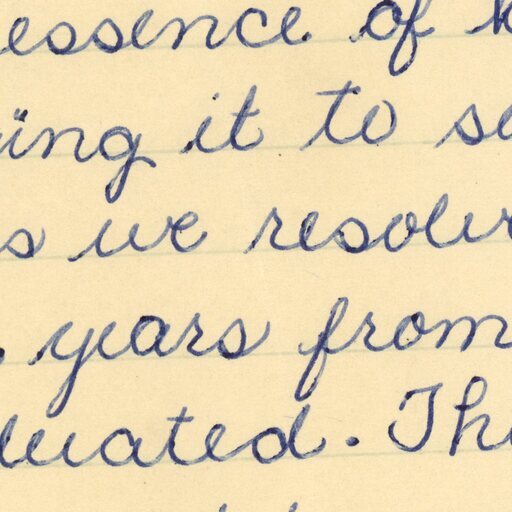 essence of
ing it to
we resolv
years from
uated. Th